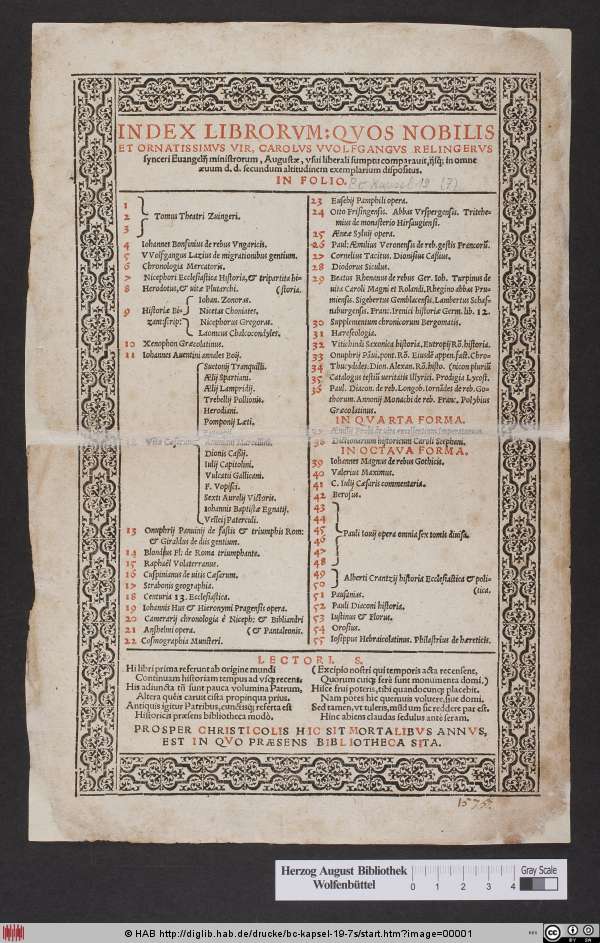 INDEX LIBRORVM: QVOS NOBILIS
ET ORNATISSIMVS VIR, CAROLVS VVOLFGANGVS RELINGERVS
synceri Euangelij ministrorum, Augustæ, vsui liberali sumptu comparauit, ijsq́; in omne
æuum d. d. secundum altitudinem exemplarium dispositus.
IN FOLIO.
Bc Kapsel 19 (7)
1
2 Tomus Theatri Zuingeri.
3
4 Iohannet Bonfinius de rebus Vngaricis.
5 VVolfgangus Lazius de migrationibus gentium.
6 Chronologia Mercatoris.
7 Nicephori Ecclesiastica Historia, & tripartita hi-
8 Herodotus, & uitæ Plutarchi. (storia.
Iohan. Zonoras.
9 Historiæ Bi- Nicetas Choniates,
zant: scrip: Nicephorus Gregoras.
Laonicus Chalcocondyles.
10 Xenophon Græcolatinus.
11 Iohannes Auentini annales Boij.
Suetonij Tranquilli.
Ælij Spartiani.
Ælij Lampridij.
Trebellij Pollionis.
Herodiani.
Pomponij Læti.
12 Vitæ Cæsarum Ammiani Marcellini.
Dionis Cassij.
Iulij Capitolini.
Vulcatij Gallicani.
F. Vopisci.
Sexti Aurelij Victoris.
Iohannis Baptistæ Egnatij.
Velleij Paterculi.
13 Onuphrij Panuinij de fastis & triumphis Rom:
& Giraldus de diis gentium.
14 Blondus Fl: de Roma triumphante.
15 Raphaël Volaterranus.
16 Cuspinianus de uitis Cæsarum.
17 Strabonis geographia.
18 Centuria 13. Ecclesiastica.
19 Iohannis Hus & Hieronymi Pragensis opera.
20 Camerarij chronologia è Niceph: & Bibliandri
21 Anshelmi opera. (& Pantaleonis.
22 Cosmographia Munsteri.
23 Eusebij Pamphili opera.
24 Otto Frisingensis. Abbas Vrspergensis. Trithe-
mius de monasterio Hirsaugiensi.
25 Æneæ Syluij opera.
26 Paul: Æmilius Veronensis de reb. gestis Francorū.
27 Cornelius Tacitus. Dionisius Cassius.
28 Diodorus Siculus.
29 Beatus Rhenanus de rebus Ger. Ioh. Turpinus de
uita Caroli Magni et Rolandi, Rhegino abbas Pru-
miensis. Sigebertus Gemblacensis, Lambertus Schaf-
naburgensis. Franc. Irenici historia Germ. lib. 12.
30 Supplementum chronicorum Bergomatis.
31 Hæreseologia.
32 Vitichindi Saxonica historia, Eutropij Rō. historia.
33 Onuphrij Pāui. pont. Rō. Eiusdē appen. fast. Chro-
34 Thucydides. Dion. Alexan. Rō. histo. (nicon plurilū
35 Catalogus testiū ueritatis illyrici. Prodigia Lycost.
36 Paul. Diacon. de reb. Longob. Iornādes de reb. Go-
thorum. Annonij Monachi de reb. Franc. Polybius
Græcolatinus.
IN QVARTA FORMA.
37 Æmilij Probi de uita excellentium Imperatorum.
38 Dictionarium historicum Caroli Stephani.
IN OCTAVA FORMA.
39 Iohannes Magnus de rebus Gothicis.
40 Valerius Maximus.
41 C. Iulij Cæsaris commentaria.
42 Berosus.
43
44
45 Pauli Iouij opera omnia sex tomis diuisa.
46
47
48
49 Alberti Crantzij historia Ecclesiastica & poli-
50 (tica.
51 Pausanias.
52 Pauli Diaconi historia.
53 Iustinus & Florus.
54 Orosius.
55 Iosippus Hebraicolatinus. Philastrius de hæreticis.
LECTORI. S.
Hi libri prima referunt ab origine mundi
Continuam historiam tempus ad vsq; recens.
His adiuncta tñ sunt pauca volumina Patrum,
Altera quêis caruit cista propinqua prius.
Antiquis igitur Patribus, cunctisq; referta est
Historicis præsens bibliotheca modò.
(Excipio nostri qui temporis acta recensent,
Quorum cuiq; ferè sunt monumenta domi.)
Hisce frui poteris, tibi quandocunq; placebit.
Nam potes hic quemuis voluere, siue domi.
Sed tamen, vt tuleris, mūdum sic reddere par est.
Hinc abiens claudas sedulus ante seram.
PROSPER CHRISTICOLIS HIC SIT MORTALIBVS ANNVS,
EST IN QVO PRÆSENS BIBLIOTHECA SITA.
1575.
Herzog August Bibliothek
Wolfenbüttel
0 1 2 3 4
Gray Scale
© HAB http://diglib.hab.de/drucke/bc-kapsel-19-7s/start.htm?image=00001
BY SA